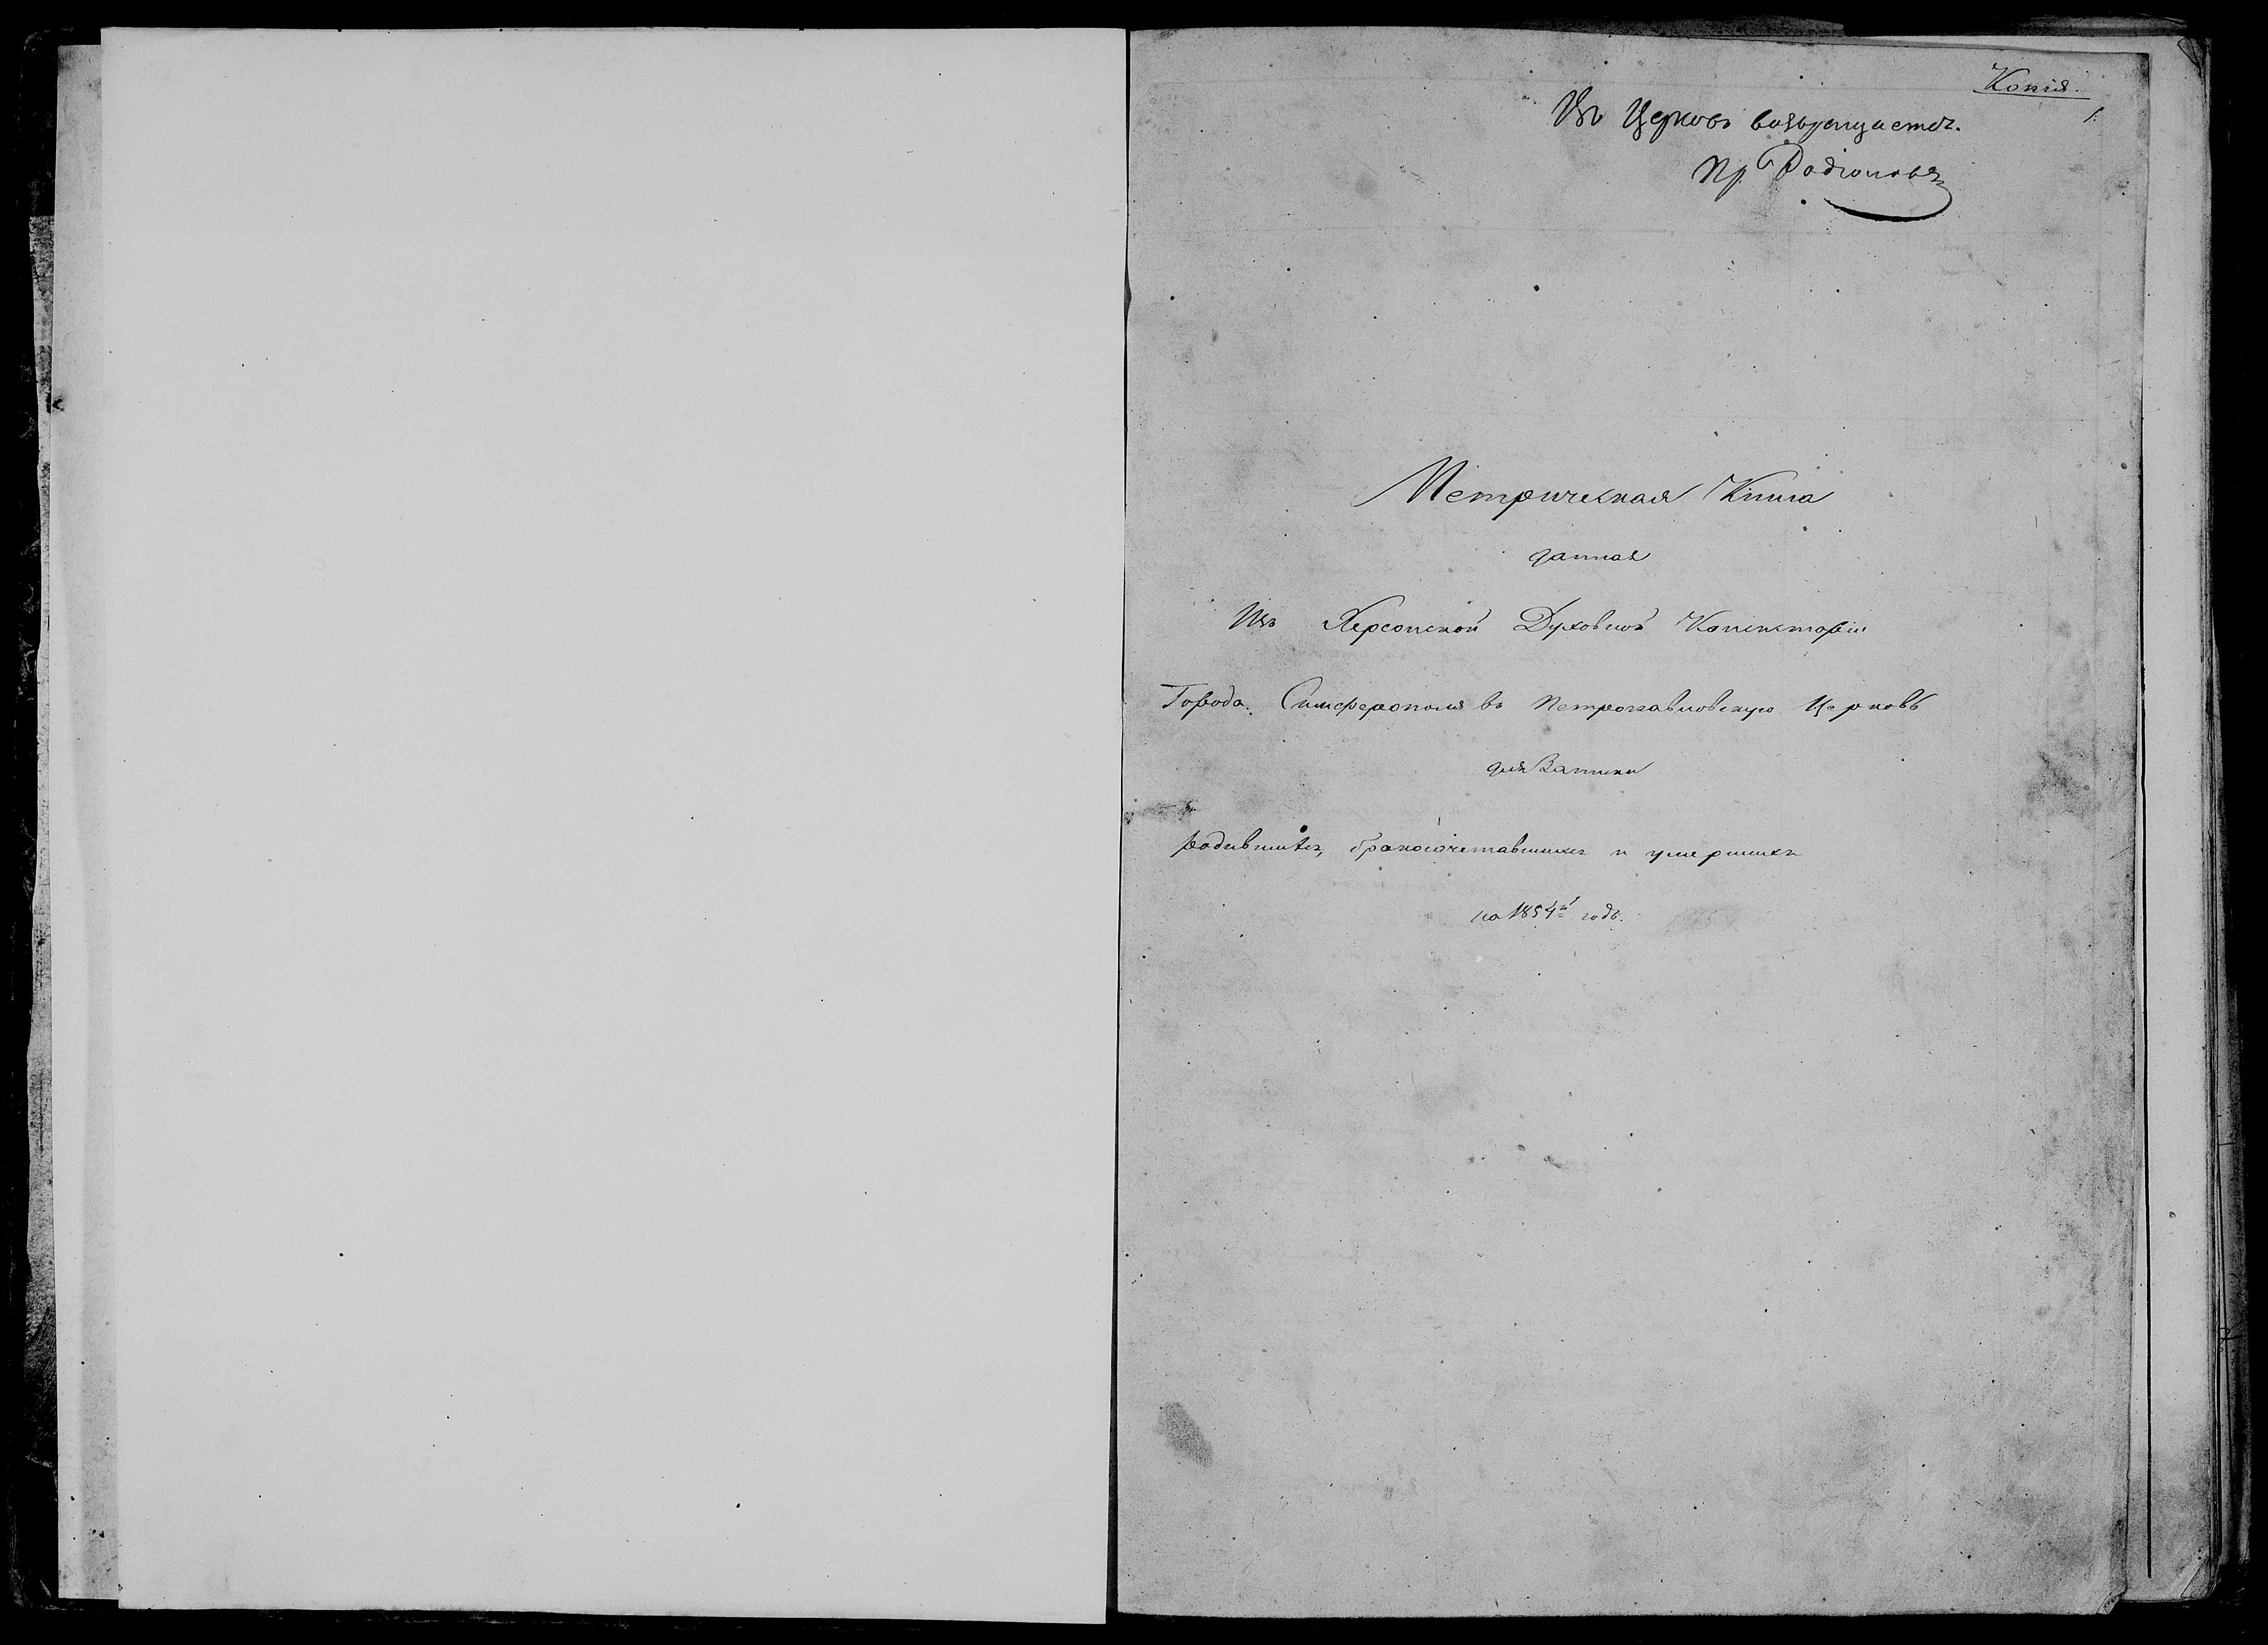 Копія.
1.
Въ Церковь возвращается.
Пр. Родіоновъ
Метрическая Книга
данная
Изъ Херсонской Духовной Консисторіи
Города Симферополя въ Петропавловскую Церковь
для Записки
родившихся, бракосочетавшихся и умершихъ
на 1854й годъ.